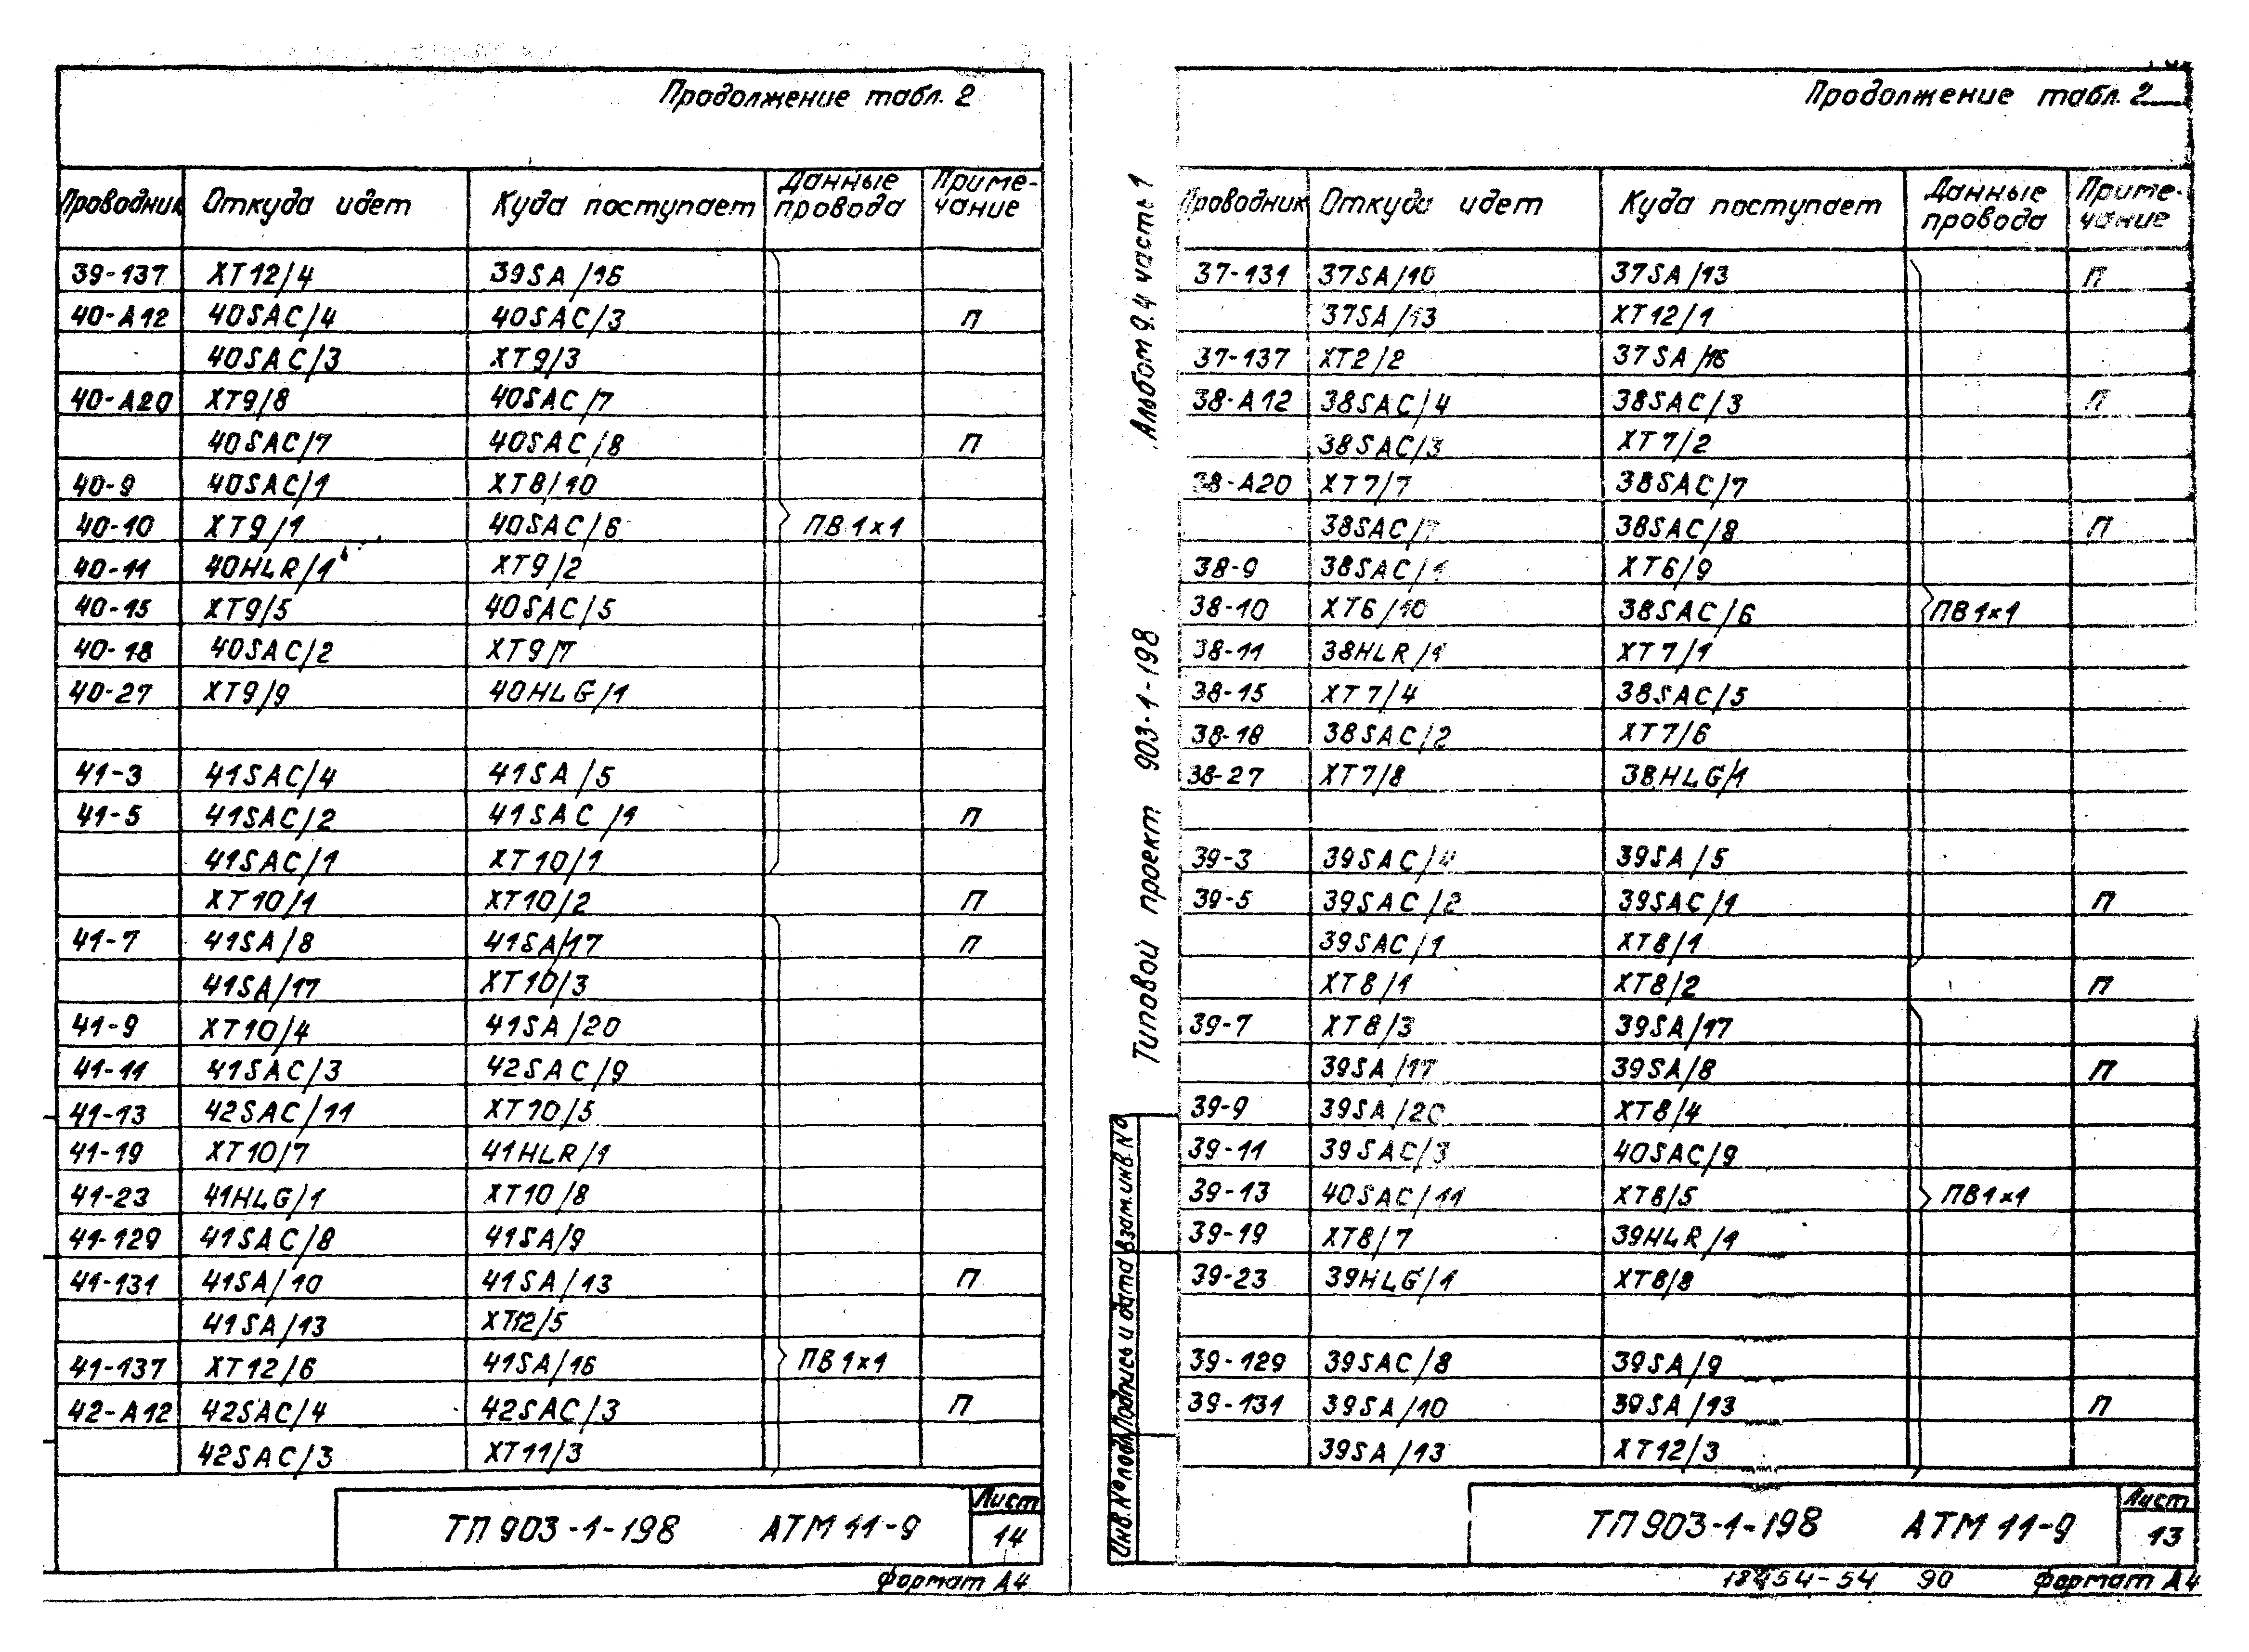 Продолжение табл. 2
Проводник Откуда идет Куда поступает Данные провода Приме-чание
39-137 XT12/4 39SA/16
40-A12 40SAC/4 40SAC/3 П
40SAC/3 XT9/3
40-A20 XT9/8 40SAC/7
40SAC/7 40SAC/8 П
40-9 40SAC/1 XT8/10
40-10 XT9/1 40SAC/6 ПВ 1×1
40-11 40HLR/1 XT9/2
40-15 XT9/5 40SAC/5
40-18 40SAC/2 XT9/7
40-27 XT9/9 40HLG/1
41-3 41SAC/4 41SA/5
41-5 41SAC/2 41SAC/1 П
41SAC/1 XT10/1
XT10/1 XT10/2 П
41-7 41SA/8 41SA/17 П
41SA/17 XT10/3
41-9 XT10/4 41SA/20
41-11 41SAC/3 42SAC/9
41-13 42SAC/11 XT10/5
41-19 XT10/7 41HLR/1
41-23 41HLG/1 XT10/8
41-129 41SAC/8 41SA/9
41-131 41SA/10 41SA/13 П
41SA/13 XT12/5
41-137 XT12/6 41SA/16 ПВ 1×1
42-A12 42SAC/4 42SAC/3 П
42SAC/3 XT11/3
ТП 903-1-198 АТМ 11-9
Лист
14
Формат А4
Альбом 9.4 часть 1
Типовой проект 903-1-198
Инв.№ подл. Подпись и дата Взам.инв.№
Продолжение табл. 2
Проводник Откуда идет Куда поступает Данные провода Приме-чание
37-131 37SA/10 37SA/13 П
37SA/13 XT12/1
37-137 XT2/2 37SA/16
38-A12 38SAC/4 38SAC/3 П
38SAC/3 XT7/2
38-A20 XT7/7 38SAC/7
38SAC/7 38SAC/8 П
38-9 38SAC/1 XT6/9
38-10 XT6/10 38SAC/6 ПВ 1×1
38-11 38HLR/1 XT7/1
38-15 XT7/4 38SAC/5
38-18 38SAC/2 XT7/6
38-27 XT7/8 38HLG/1
39-3 39SAC/4 39SA/5
39-5 39SAC/2 39SAC/1 П
39SAC/1 XT8/1
XT8/1 XT8/2 П
39-7 XT8/3 39SA/17
39SA/17 39SA/8 П
39-9 39SA/20 XT8/4
39-11 39SAC/3 40SAC/9
39-13 40SAC/11 XT8/5 ПВ 1×1
39-19 XT8/7 39HLR/1
39-23 39HLG/1 XT8/8
39-129 39SAC/8 39SA/9
39-131 39SA/10 39SA/13 П
39SA/13 XT12/3
ТП 903-1-198 АТМ 11-9
Лист
13
90 Формат А4